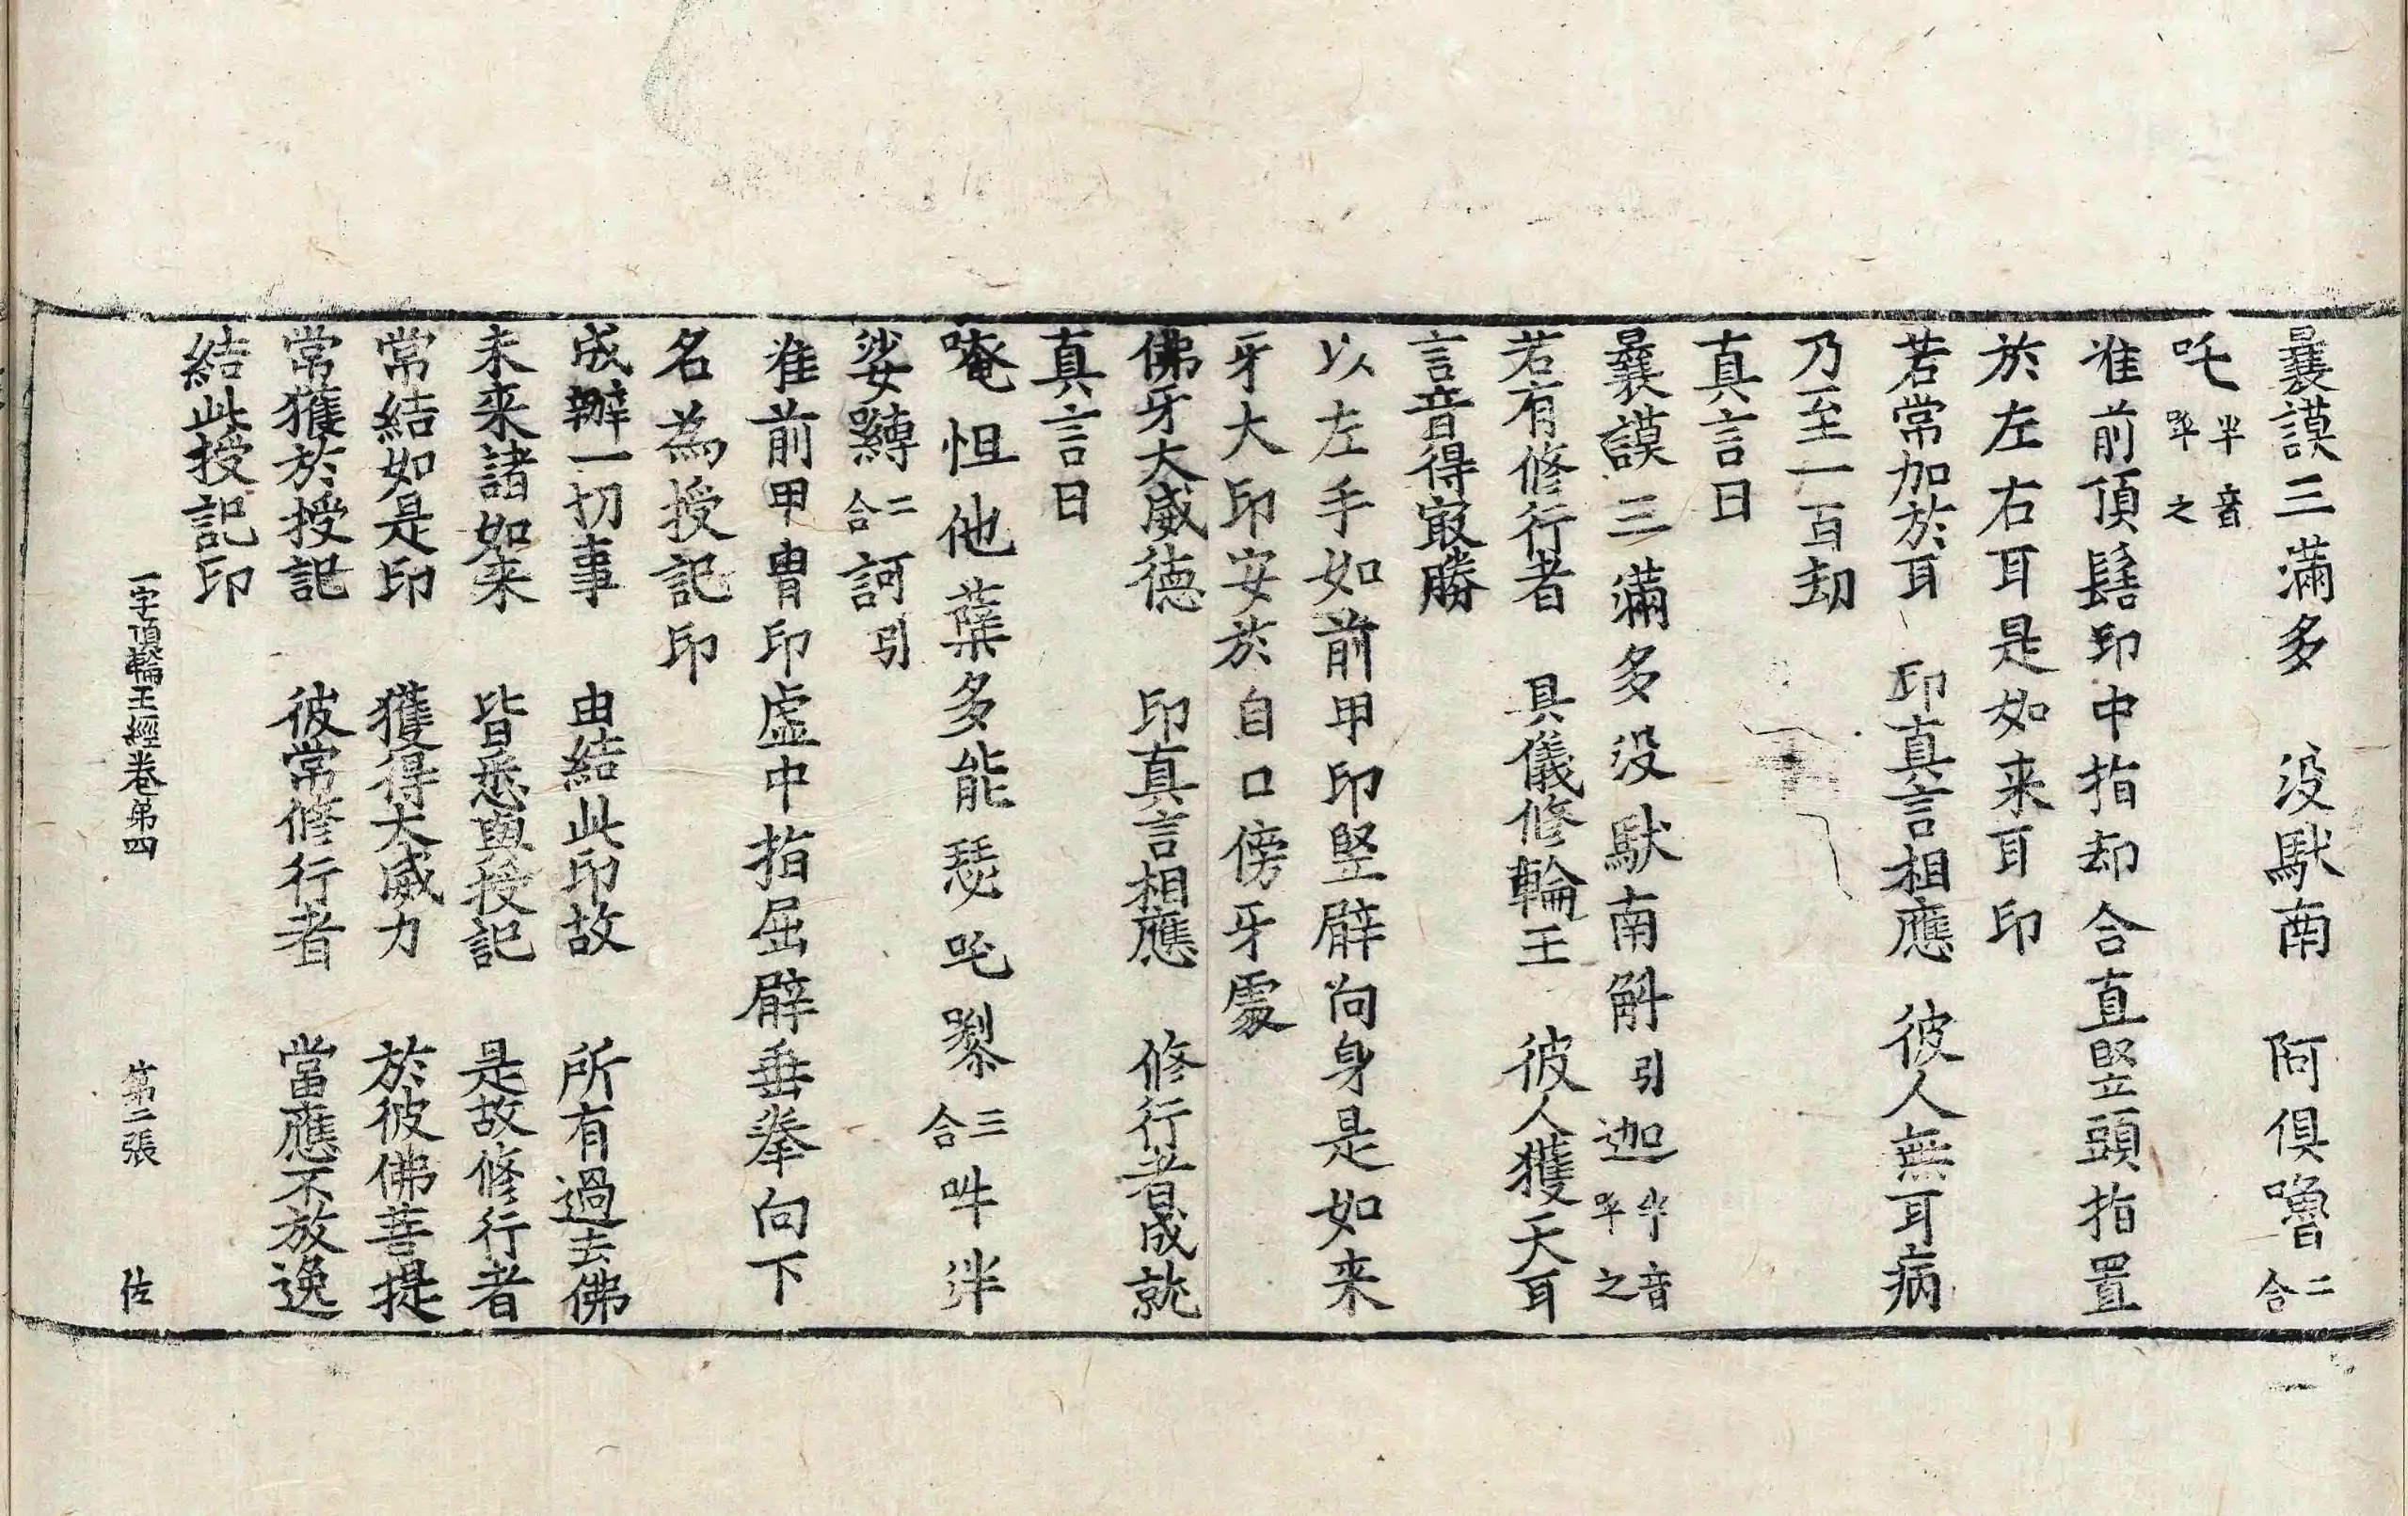 曩謨三滿多　没馱南　阿俱嚕二合
吒半音呼之
准前頂髻印中指却合直竪頭指置
於左右耳是如来耳印
若常加於耳　印真言相應　彼人無耳病
乃至一百劫
真言曰
曩謨三滿多没馱南斛引迦半音呼之
若有修行者　具儀修輪王　彼人獲天耳
言音得㝡勝
以左手如前甲印竪躃向身是如来
牙大印安於自口傍牙處
佛牙大威德　印真言相應　修行者成就
真言曰
唵怛他蘖多能瑟吒㘑三合吽泮
娑嚩二合訶引
准前甲胄印虛中指屈躃垂拳向下
名為授記印
成辦一切事　由結此印故　所有過去佛
未来諸如来　皆悉與授記　是故修行者
常結如是印　獲得大威力　於彼佛菩提
常獲於授記　彼常修行者　當應不放逸
結此授記印
一字頂輪王經卷第四　第二張　佐